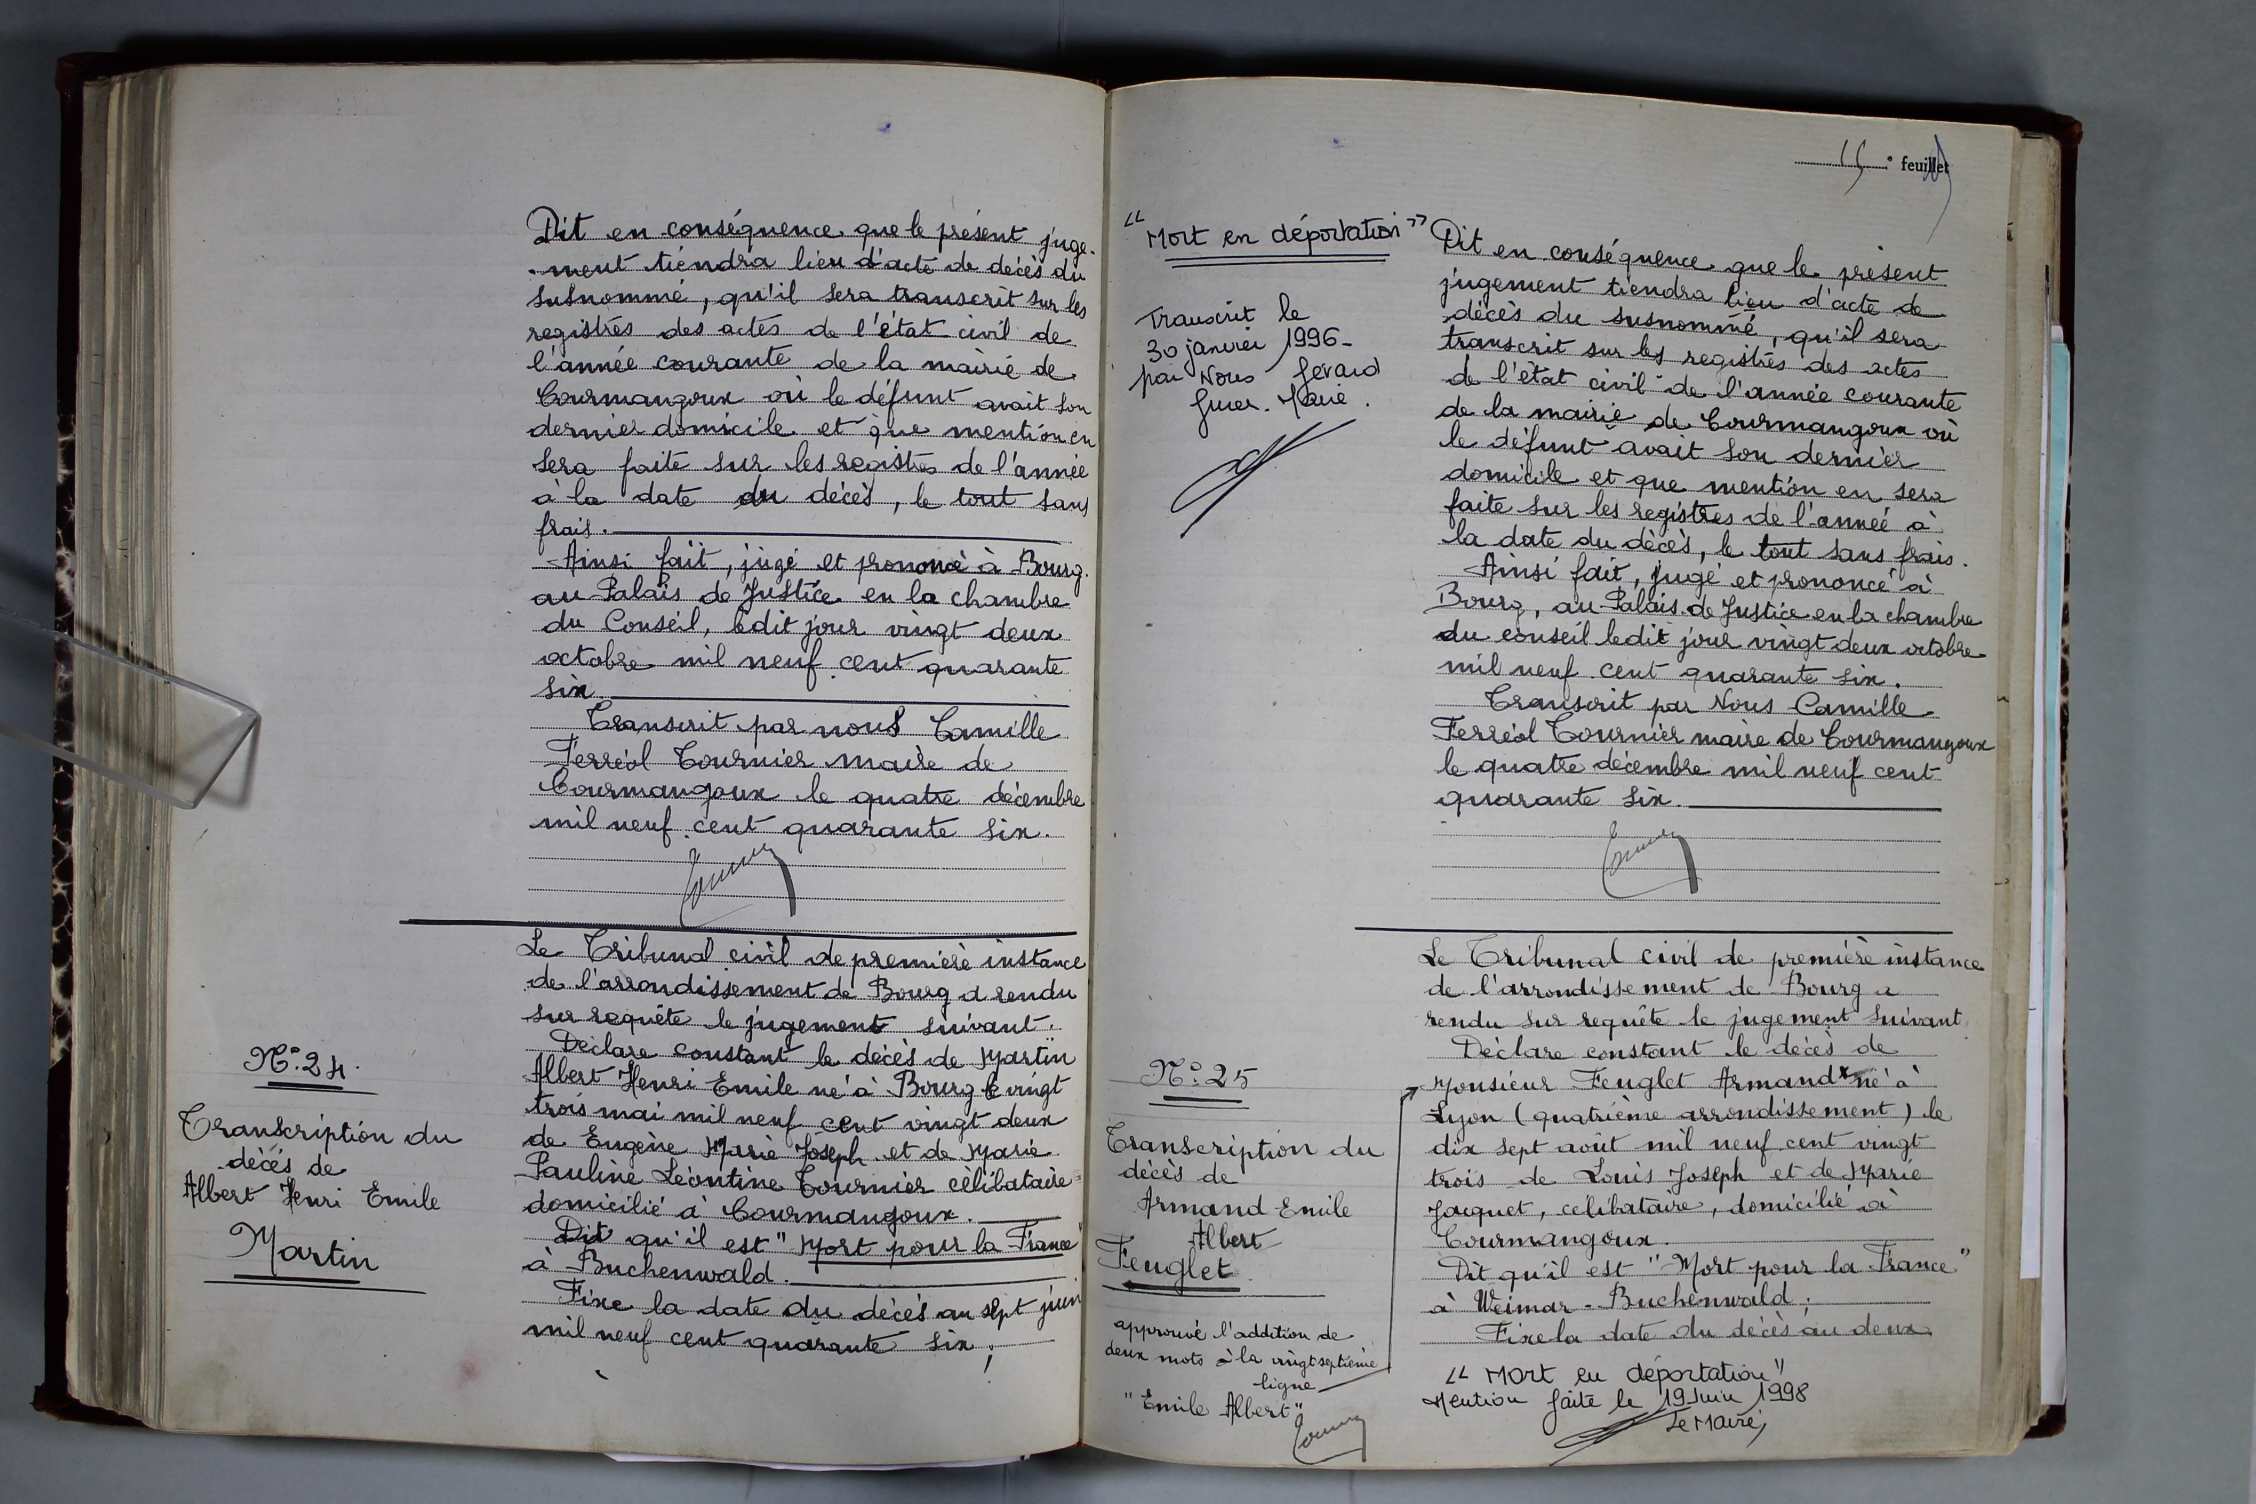 Dit en conséquence que le présent juge-
-ment tiendra lieu d'acte de décès du
susnommé, qu'il sera transcrit sur les
registres des actes de l'état civil de
l'année courante de la mairie de
Courmangoux où le défunt avait son
dernier domicile et que mention en
sera faite sur les registres de l'année
à la date du décès, le tout sans
frais.
Ainsi fait, jugé et prononcé à Bourg.
au Palais de Justice en la chambre
du Conseil, ledit jour vingt deux
octobre mil neuf cent quarante
six.
Transcrit par nous Camille
Ferréol Tournier maire de
Courmangoux le quatre décembre
mil neuf cent quarante six.
Tournier
N° 24.
Transcription du
décès de
Albert Henri Emile
Martin
Le Tribunal civil de première instance
de l'arrondissement de Bourg a rendu
sur requête le jugement suivant.
Déclare constant le décès de Martin
Albert Henri Emile né à Bourg le vingt
trois mai mil neuf cent vingt deux
de Eugène Marie Joseph et de Marie
Pauline Léontine Tournier célibataire
domicilié à Courmangoux.
Dit qu'il est "Mort pour la France"
à Buchenwald.
Fixe la date du décès au sept juin
mil neuf cent quarante six;
15 e feuillet
"Mort en déportation"
Transcrit le
30 janvier 1996-
par Nous Gérard
Maire.
Dit en conséquence que le présent
jugement tiendra lieu d'acte de
décès du susnommé, qu'il sera
transcrit sur les registres des actes
de l'état civil de l'année courante
de la mairie de Courmangoux où
le défunt avait son dernier
domicile et que mention en sera
faite sur les registres de l'année à
la date du décès, le tout sans frais.
Ainsi fait, jugé et prononcé à
Bourg, au Palais de Justice en la chambre
du conseil ledit jour vingt deux octobre
mil neuf cent quarante six.
Transcrit par Nous Camille
Ferréol Tournier maire de Courmangoux
le quatre décembre mil neuf cent
quarante six.
Tournier
N° 25
Transcription du
décès de
Armand Emile
Albert
Feuglet
approuvé l'addition de
deux mots à la vingt septième
ligne
"Emile Albert"
Tournier
Le Tribunal civil de première instance
de l'arrondissement de Bourg a
rendu sur requête le jugement suivant
Déclare constant le décès de
Monsieur Feuglet Armand x né à
Lyon (quatrième arrondissement) le
dix sept août mil neuf cent vingt
trois de Louis Joseph et de Marie
Jacquet, célibataire, domicilié à
Courmangoux.
Dit qu'il est "Mort pour la France"
à Weimar-Buchenwald;
Fixe la date du décès au deux
"Mort en déportation"
Mention faite le 19 Juin 1998
Le Maire,